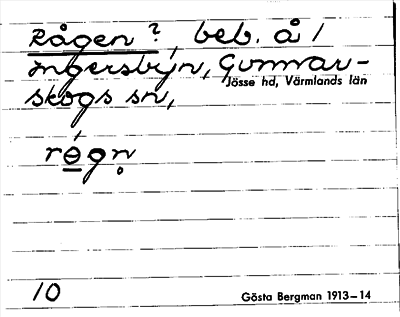 Rågen?, beb. å 1
Ingersbyn, Gunnar-
skogs sn,
Jösse hd, Värmlands län
ró̱gn̥
10
Gösta Bergman 1913–14